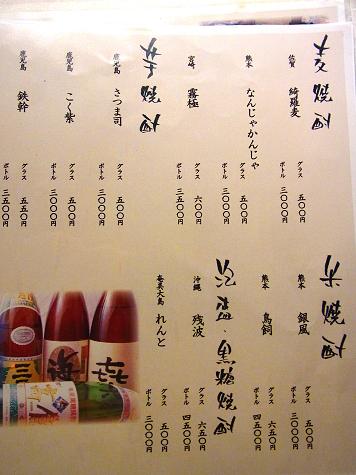 麦焼酎
佐賀 綺羅麦
グラス 五〇〇円
ボトル 三〇〇〇円
熊本 なんじゃかんじゃ
グラス 五〇〇円
ボトル 三〇〇〇円
宮崎 霧極
グラス 六〇〇円
ボトル 三五〇〇円
芋焼酎
鹿児島 さつま司
グラス 五〇〇円
ボトル 三〇〇〇円
鹿児島 こく紫
グラス 五〇〇円
ボトル 三〇〇〇円
鹿児島 鉄幹
グラス 五五〇円
ボトル 三二〇〇円
米焼酎
熊本 銀風
グラス 五〇〇円
ボトル 三〇〇〇円
熊本 鳥飼
グラス 六五〇円
ボトル 四五〇〇円
泡盛・黒糖焼酎
沖縄 残波
グラス 六五〇円
ボトル 四五〇〇円
奄美大島 れんと
グラス 五〇〇円
ボトル 三〇〇〇円